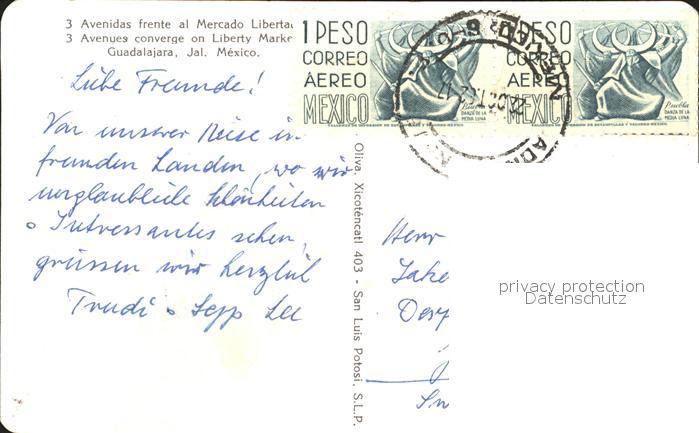 3 Avenidas frente al Mercado Libertad
3 Avenues converge on Liberty Marke
Guadalajara, Jal. México.
1 PESO
CORREO
AÉREO
MEXICO
Puebla
DANZA DE LA
MEDIA LUNA
PESO
CORREO
AÉREO
MEXICO
Puebla
DANZA DE LA
MEDIA LUNA
Liebe Freunde!
Von unserer Reise in
fremden Landen, wo wir
unglaubliche Schönheiten
o Interessantes sehen,
grüssen wir herzlich
Trudi o Sepp Lee
Oliva. Xicoténcatl 403 - San Luis Potosí, S.L.P.
Herr
privacy protection
Datenschutz